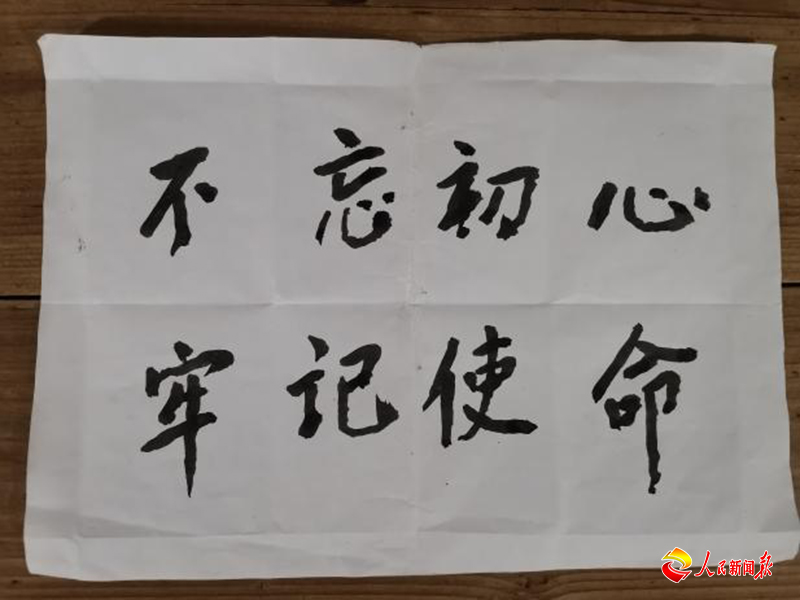 不忘初心
牢记使命
人民新闻报